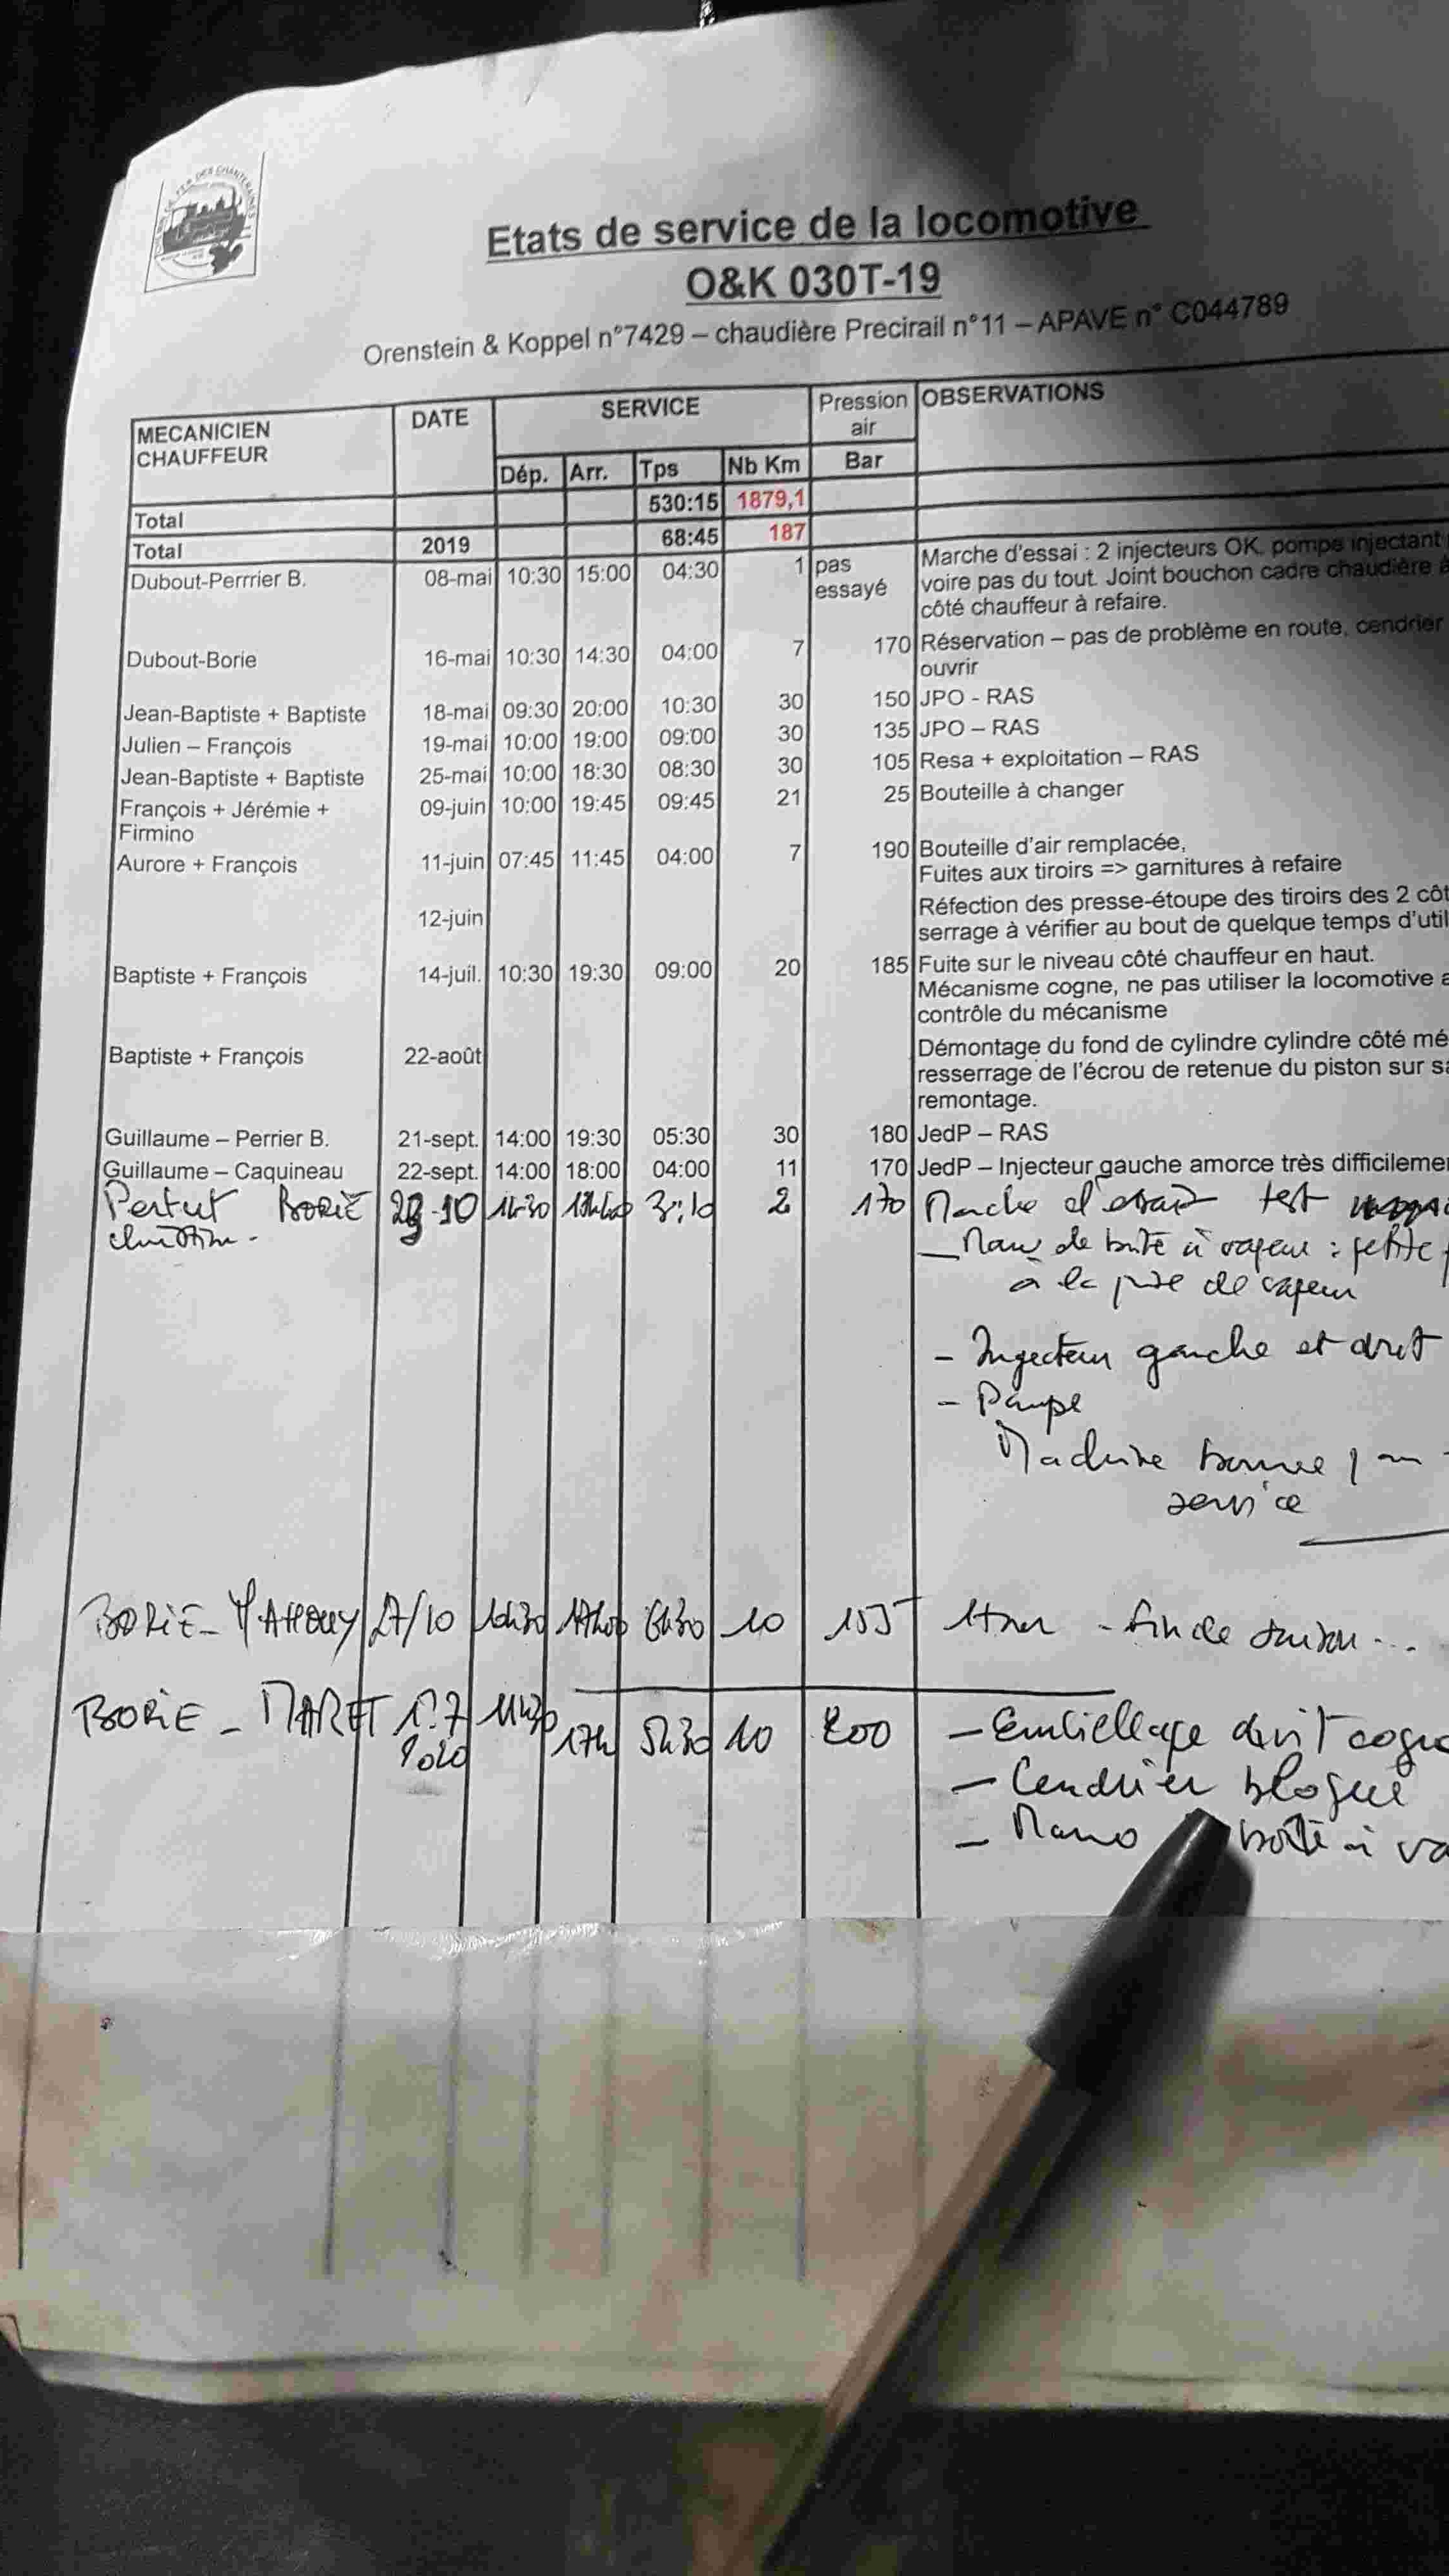 DES CHANTERAINES
Etats de service de la locomotive
O&K 030T-19
Orenstein & Koppel n°7429 – chaudière Precirail n°11 – APAVE n° C044789
MECANICIEN CHAUFFEUR DATE SERVICE Pression air OBSERVATIONS
Dép. Arr. Tps Nb Km Bar
Total 530:15 1879,1
Total 2019 68:45 187
Dubout-Perrrier B. 08-mai 10:30 15:00 04:30 1 pas essayé Marche d'essai : 2 injecteurs OK. pompe injectant
voire pas du tout. Joint bouchon cadre chaudière
côté chauffeur à refaire.
Dubout-Borie 16-mai 10:30 14:30 04:00 7 170 Réservation – pas de problème en route, cendrier
ouvrir
Jean-Baptiste + Baptiste 18-mai 09:30 20:00 10:30 30 150 JPO - RAS
Julien – François 19-mai 10:00 19:00 09:00 30 135 JPO – RAS
Jean-Baptiste + Baptiste 25-mai 10:00 18:30 08:30 30 105 Resa + exploitation – RAS
François + Jérémie + 09-juin 10:00 19:45 09:45 21 25 Bouteille à changer
Firmino
Aurore + François 11-juin 07:45 11:45 04:00 7 190 Bouteille d'air remplacée,
Fuites aux tiroirs => garnitures à refaire
12-juin Réfection des presse-étoupe des tiroirs des 2 côt
serrage à vérifier au bout de quelque temps d'util
Baptiste + François 14-juil. 10:30 19:30 09:00 20 185 Fuite sur le niveau côté chauffeur en haut.
Mécanisme cogne, ne pas utiliser la locomotive a
contrôle du mécanisme
Baptiste + François 22-août Démontage du fond de cylindre cylindre côté mé
resserrage de l'écrou de retenue du piston sur sa
remontage.
Guillaume – Perrier B. 21-sept. 14:00 19:30 05:30 30 180 JedP – RAS
Guillaume – Caquineau 22-sept. 14:00 18:00 04:00 11 170 JedP – Injecteur gauche amorce très difficilemen
Pertut BORIE 2 170 Marche d'essai test
— Mano de boîte à vapeur : petite
à la prise de vapeur
- Injecteur gauche et droit
- Pompe
Machine bonne
service
BORIE - MATHOUY 27/10 10h30 17h00 6h30 10 155 - fin de saison...
BORIE - MARET 1.7 11h30 17h 5h30 10 200 — Embiellage droit cogne
2020 — Cendrier bloqué
— Mano boîte à va